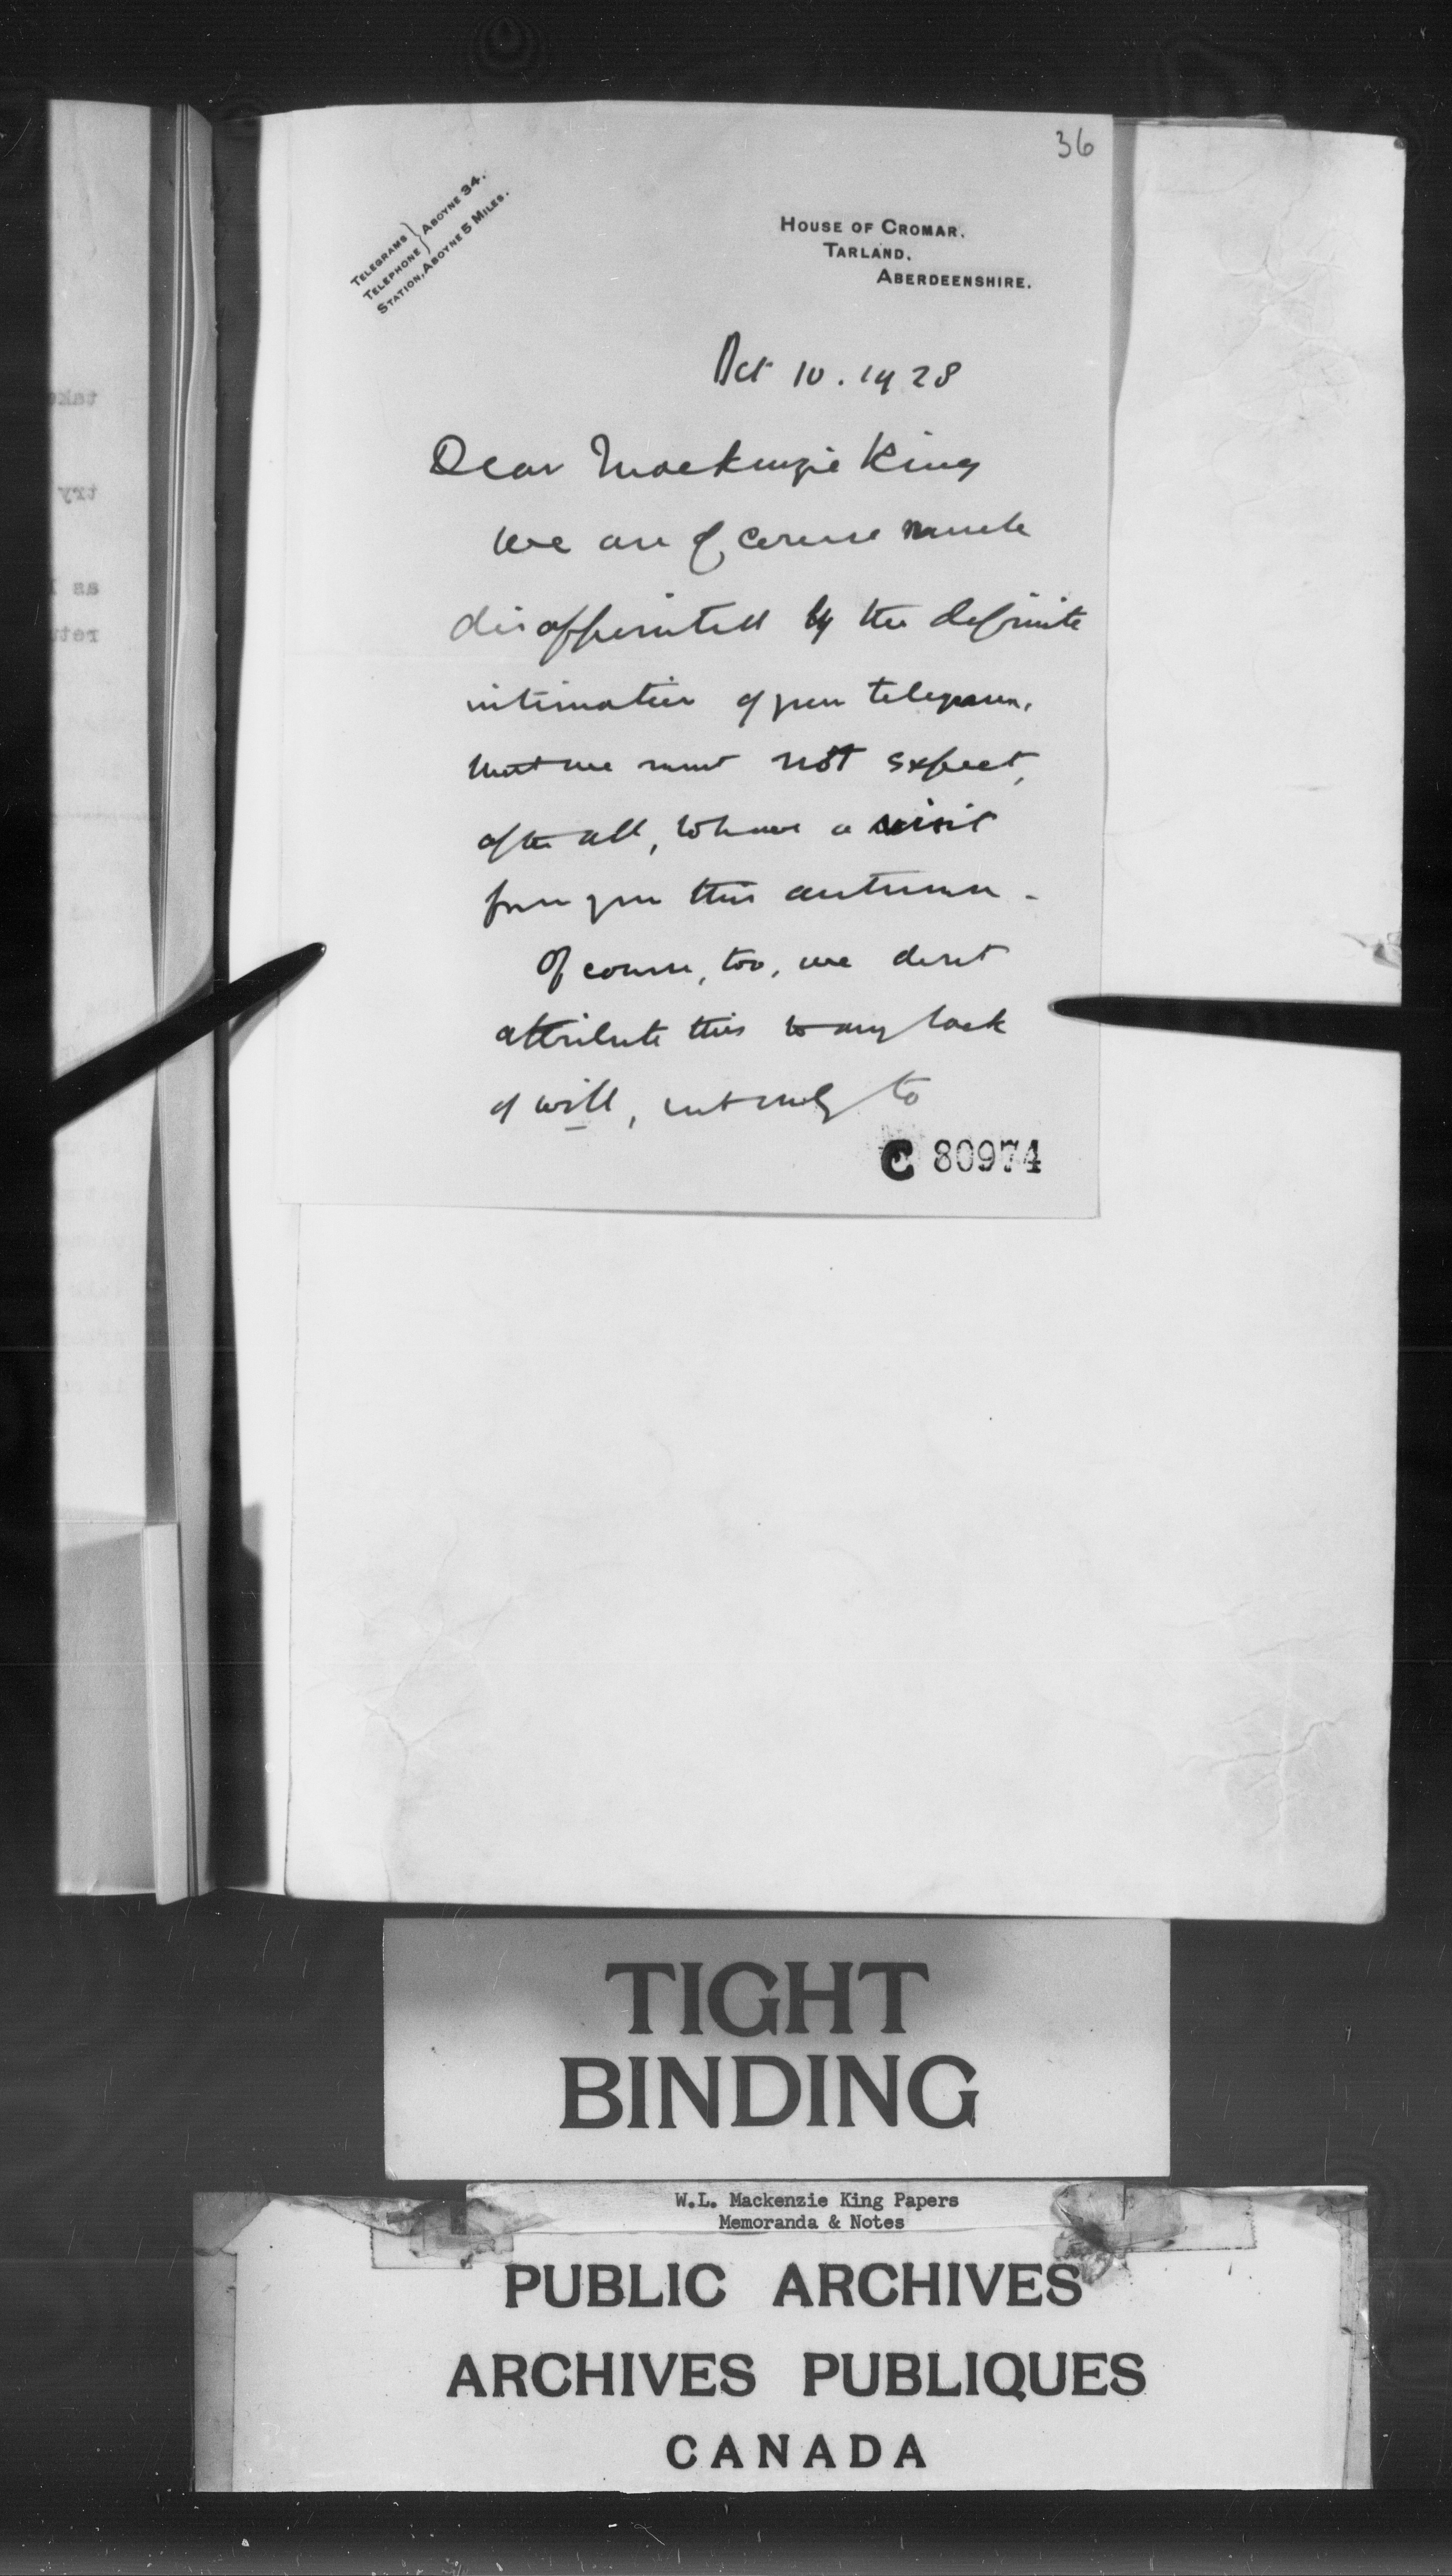 36
TELEGRAMS
TELEPHONE } ABOYNE 34.
STATION, ABOYNE 5 MILES.
HOUSE OF CROMAR.
TARLAND.
ABERDEENSHIRE.
Oct 10. 1928
Dear Mackenzie King
We are of course much
disappointed by the definite
intimation of your telegram,
that we must not expect,
after all, to have a visit
from you this autumn.
Of course, too, we don't
attribute this to any lack
of will, but only to
C 80974
TIGHT
BINDING
W.L. Mackenzie King Papers
Memoranda & Notes
PUBLIC ARCHIVES
ARCHIVES PUBLIQUES
CANADA